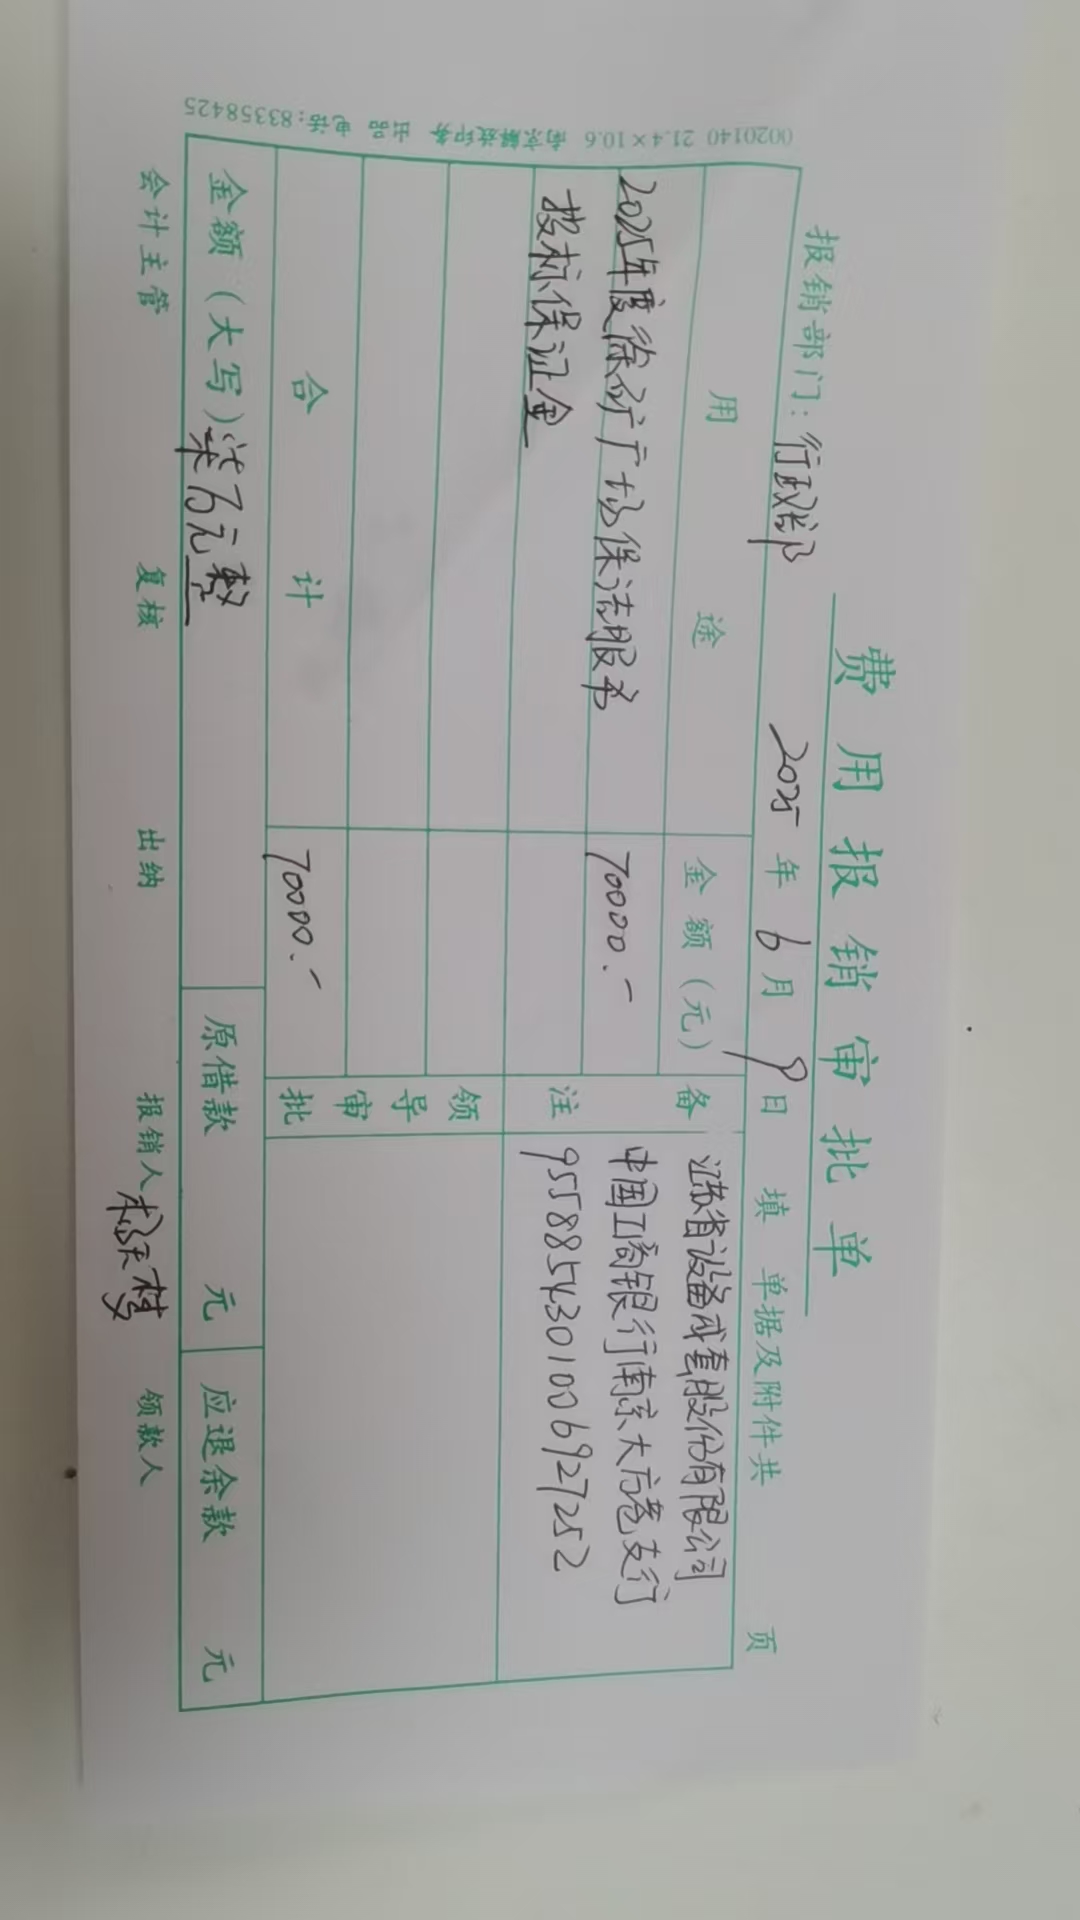 费用报销审批单
报销部门：行政部 2025年6月9日填 单据及附件共 页
用途 金额（元） 备注
2025年度徐矿广场保洁服务 70000.-
投标保证金
江苏省设备成套股份有限公司
中国工商银行南京大方巷支行
9558854301006927252
领导审批
合计 70000.-
金额（大写）柒万元整 原借款 元 应退余款 元
会计主管 复核 出纳 报销人 领款人
0020140 21.4×10.6 南京解放印务 出品 电话：83358425